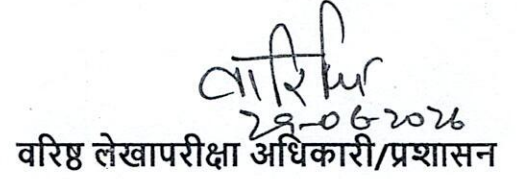 29-06-2026
वरिष्ठ लेखापरीक्षा अधिकारी/प्रशासन